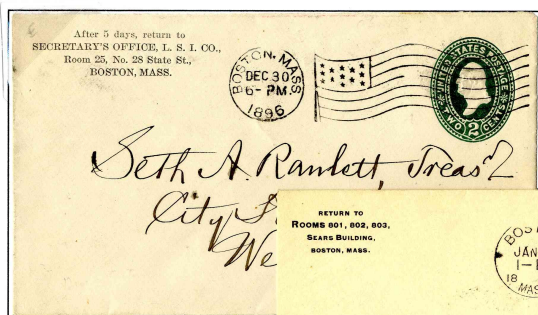 After 5 days, return to
SECRETARY'S OFFICE, L. S. I. CO.,
Room 25, No. 28 State St.,
BOSTON, MASS.
BOSTON, MASS
DEC 30
6-PM.
1896
UNITED STATES POSTAGE
TWO 2 CENTS
Seth A. Ranlett, Treas'r
City
We
RETURN TO
ROOMS 801, 802, 803,
SEARS BUILDING,
BOSTON, MASS.
BOST
JAN
1-
18
MAS